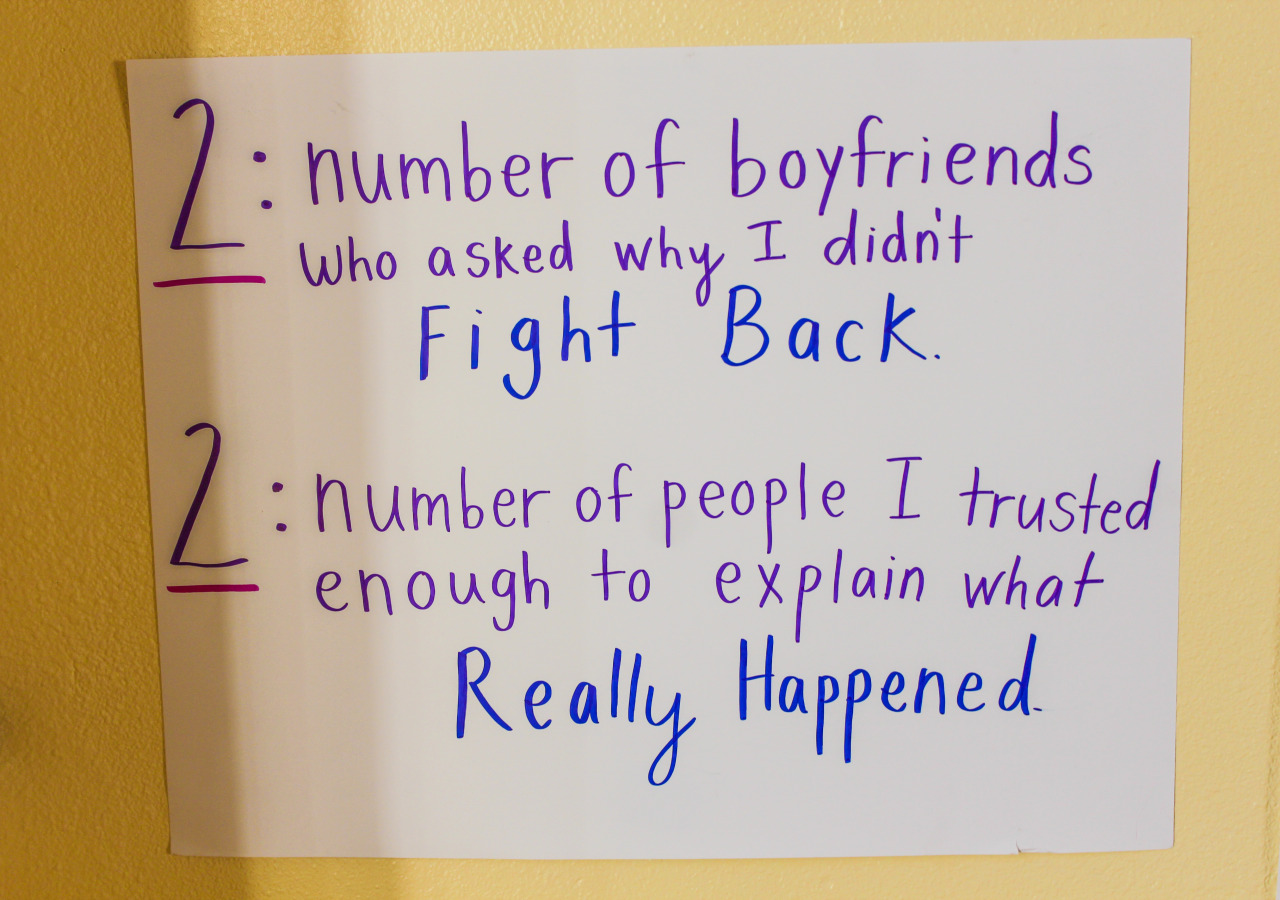 2: number of boyfriends
who asked why I didn't
Fight Back.
2: number of people I trusted
enough to explain what
Really Happened.